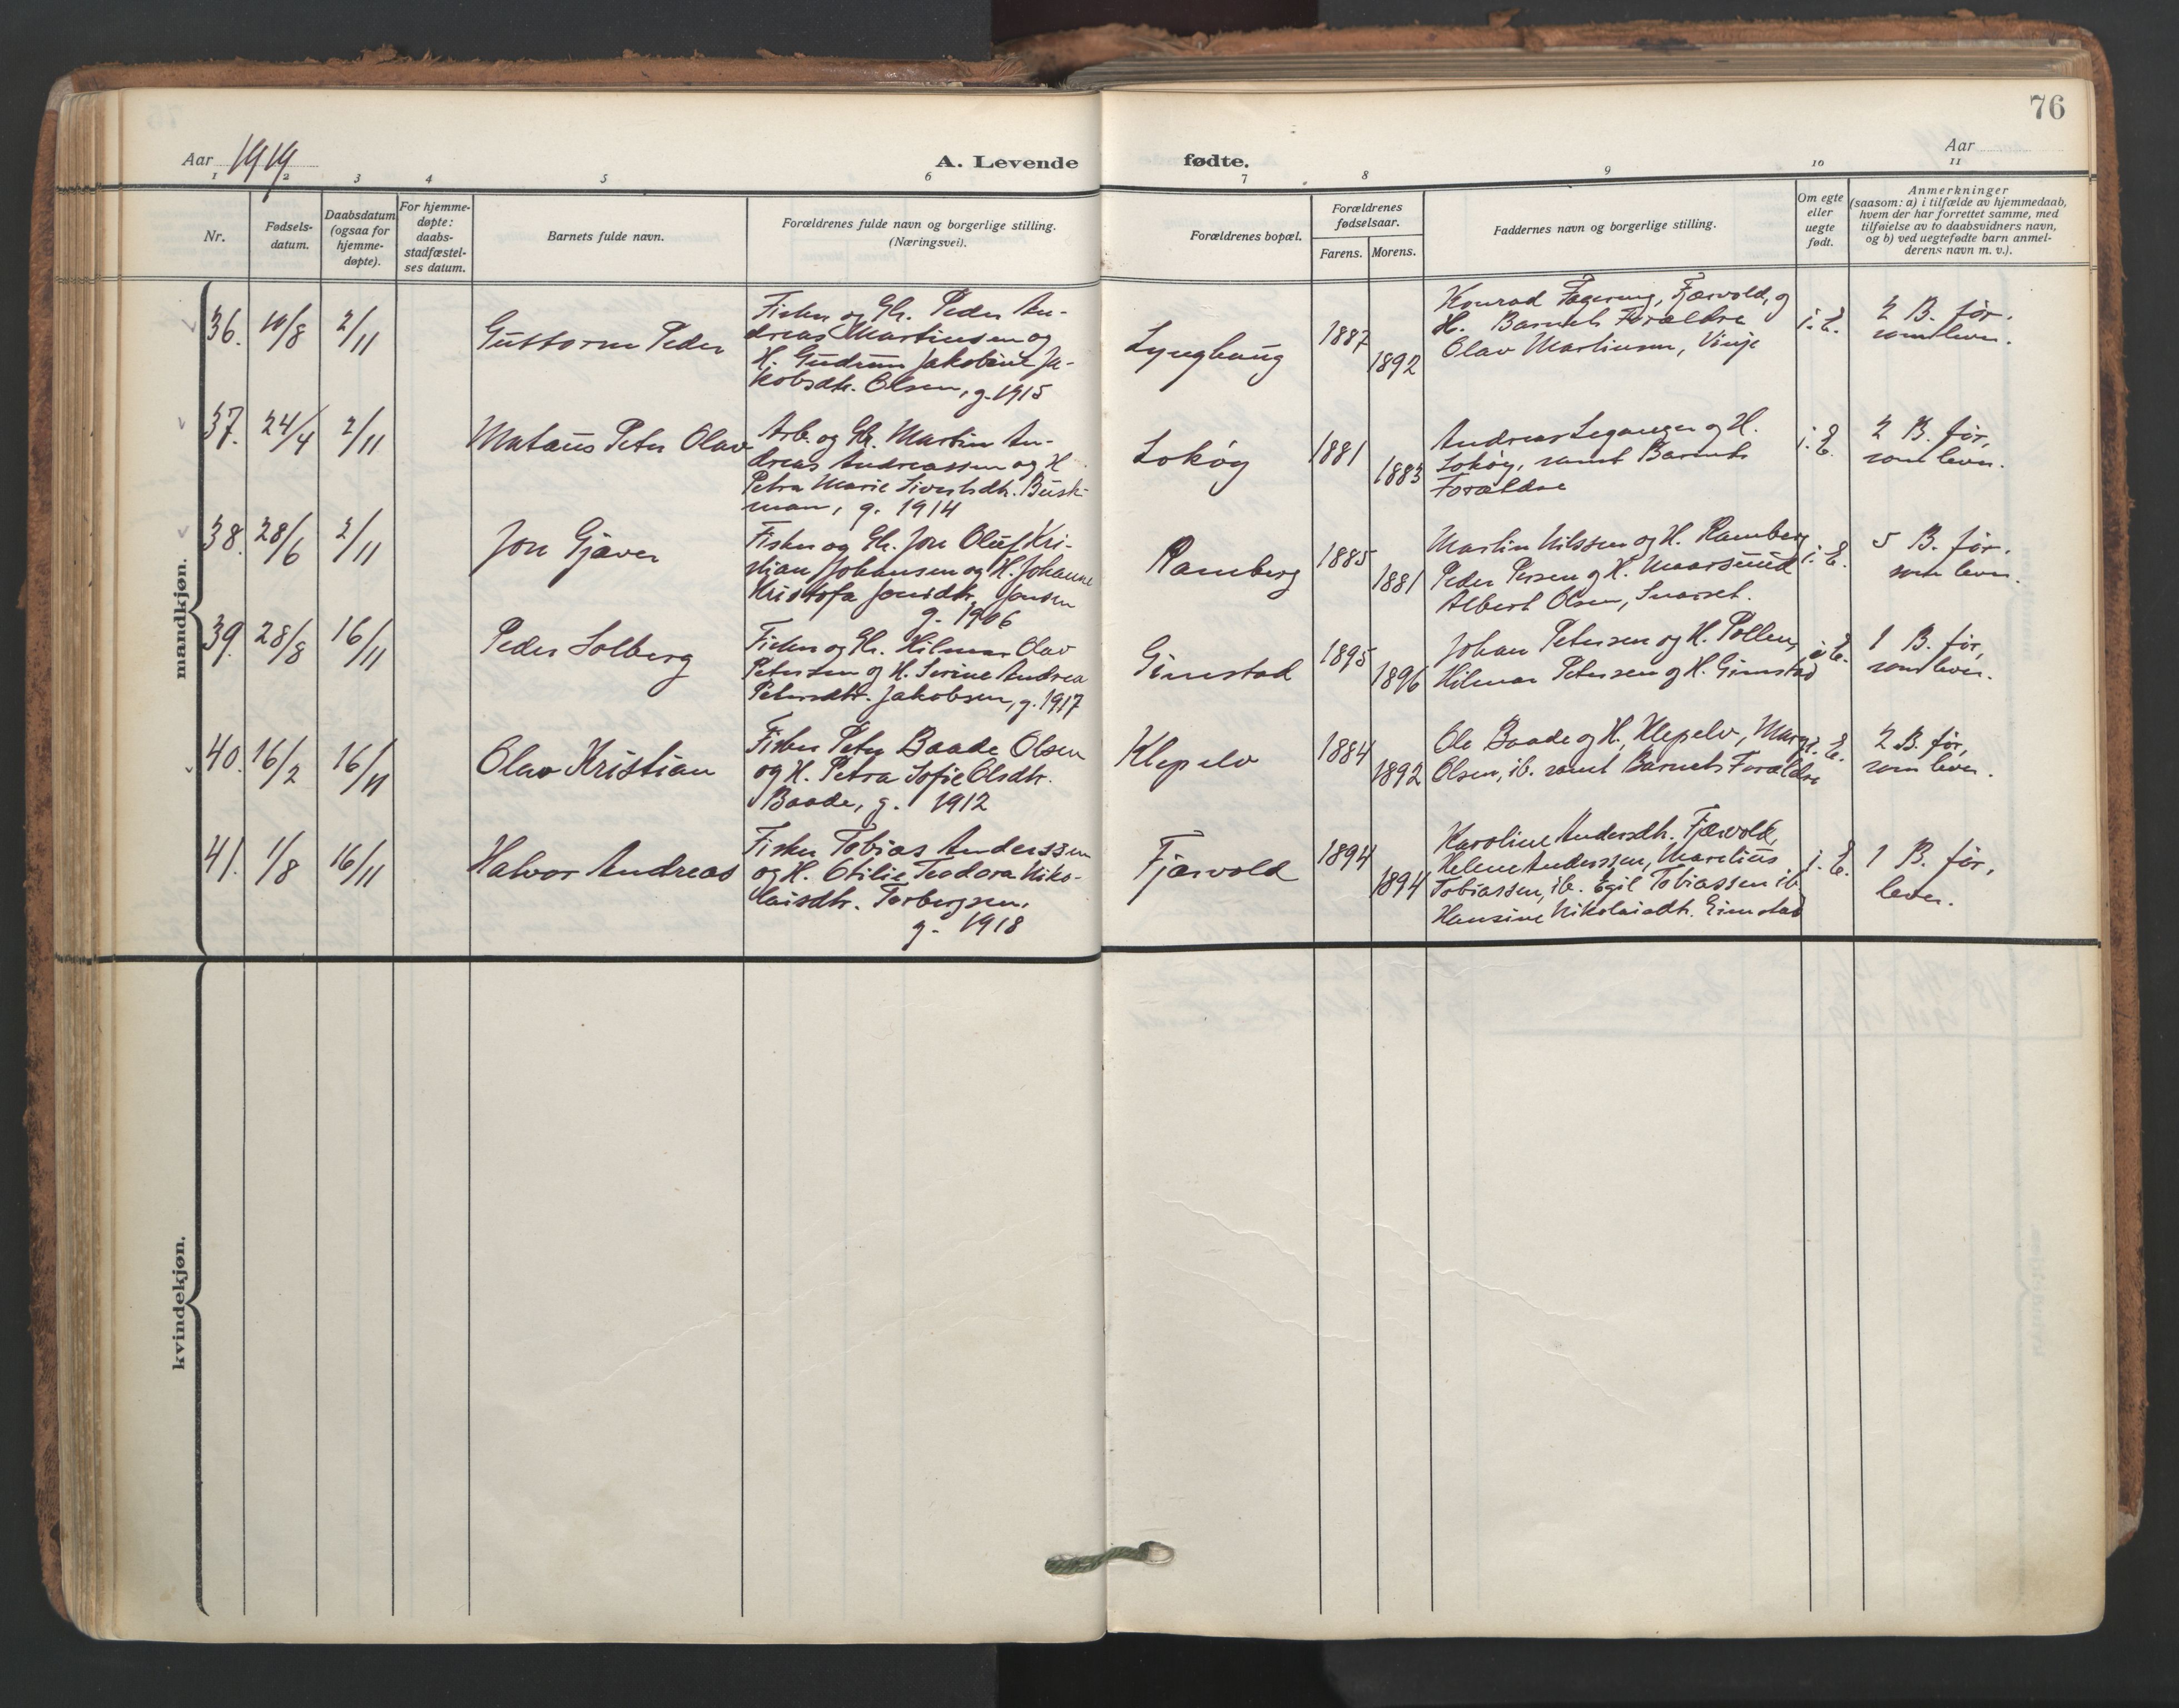 76
Aar 1919
A. Levende fødte.
Aar
1 2 3 4 5 6 7 8 9 10 11
Nr.
Fødsels-
datum.
Daabsdatum
(ogsaa for
hjemme-
døpte).
For hjemme-
døpte:
daabs-
stadfæstel-
ses datum.
Barnets fulde navn.
Forældrenes fulde navn og borgerlige stilling.
(Næringsvei).
Forældrenes bopæl.
Forældrenes
fødselsaar.
Farens. Morens.
Faddernes navn og borgerlige stilling.
Om egte
eller
uegte
født.
Anmerkninger
(saasom: a) i tilfælde av hjemmedaab,
hvem der har forrettet samme, med
tilføielse av to daabsvidners navn,
og b) ved uegtefødte barn anmel-
derens navn m. v.).
mandkjøn.
36. 10/8 2/11
Guttorm Peder
Fisker og Gbr. Peder An-
dreas Martinsen og
H. Gudrun Jakobine Ja-
kobsdtr. Olsen, g. 1915
Lynghaug
1887
1892
Konrad Fagereng, Fjærvold, og
H. Barnets Forældre
Olav Martinsen, Vinje
i. E.
2 B. før,
som lever.
37. 24/4 2/11
Mataus Peter Olav
Arb. og Gbr. Martin An-
dreas Andreassen og H
Petra Marie Sivertsdtr. Busk-
man, g. 1914
Lokøy
1881
1883
Andreas Leganger og H.
Lokøy, samt Barnets
Forældre
i. E.
2 B. før,
som lever.
38. 28/6 2/11
Jon Gjæver
Fisker og Gbr. Jon Oluf Kri-
stian Johansen og H. Johanne
Kristofa Jonsdtr. Jonsen
g. 1906
Ramberg
1885
1881
Martin Nilssen og H. Ramberg
Peder Persen og H. Maarsund
Albert Olsen, Snarset.
i. E.
5 B. før.
som lever.
39. 28/8 16/11
Peder Solberg
Fisker og Gbr. Hilmar Olav
Petersen og H. Serine Andrea
Petersdtr. Jakobsen, g. 1917
Gimstad
1895
1896
Johan Petersen og H. Pollen,
Hilmar Petersen og H. Gimstad
i E.
1 B. før,
som lever.
40. 16/2 16/11
Olav Kristian
Fisker Peter Baade Olsen
og H. Petra Sofie Olsdtr.
Baade, g. 1912
Klepelv
1884
1892
Ole Baade og H., Klepelv,
Olsen, ib. samt Barnets Forældre
i. E.
2 B. før,
som lever.
41. 1/8 16/11
Halvor Andreas
Fisker Tobias Anderssen
og H. Otilie Teodora Niko-
laisdtr. Torbergsen,
g. 1918
Fjærvold
1894
1894
Karoline Andersdtr. Fjærvold,
Helene Anderssen, Marelius
Tobiassen, ib. Egil Tobiassen ib
Hansine Nikolaisdtr. Gimstad
i. E.
1 B. før,
lever.
kvindekjøn.